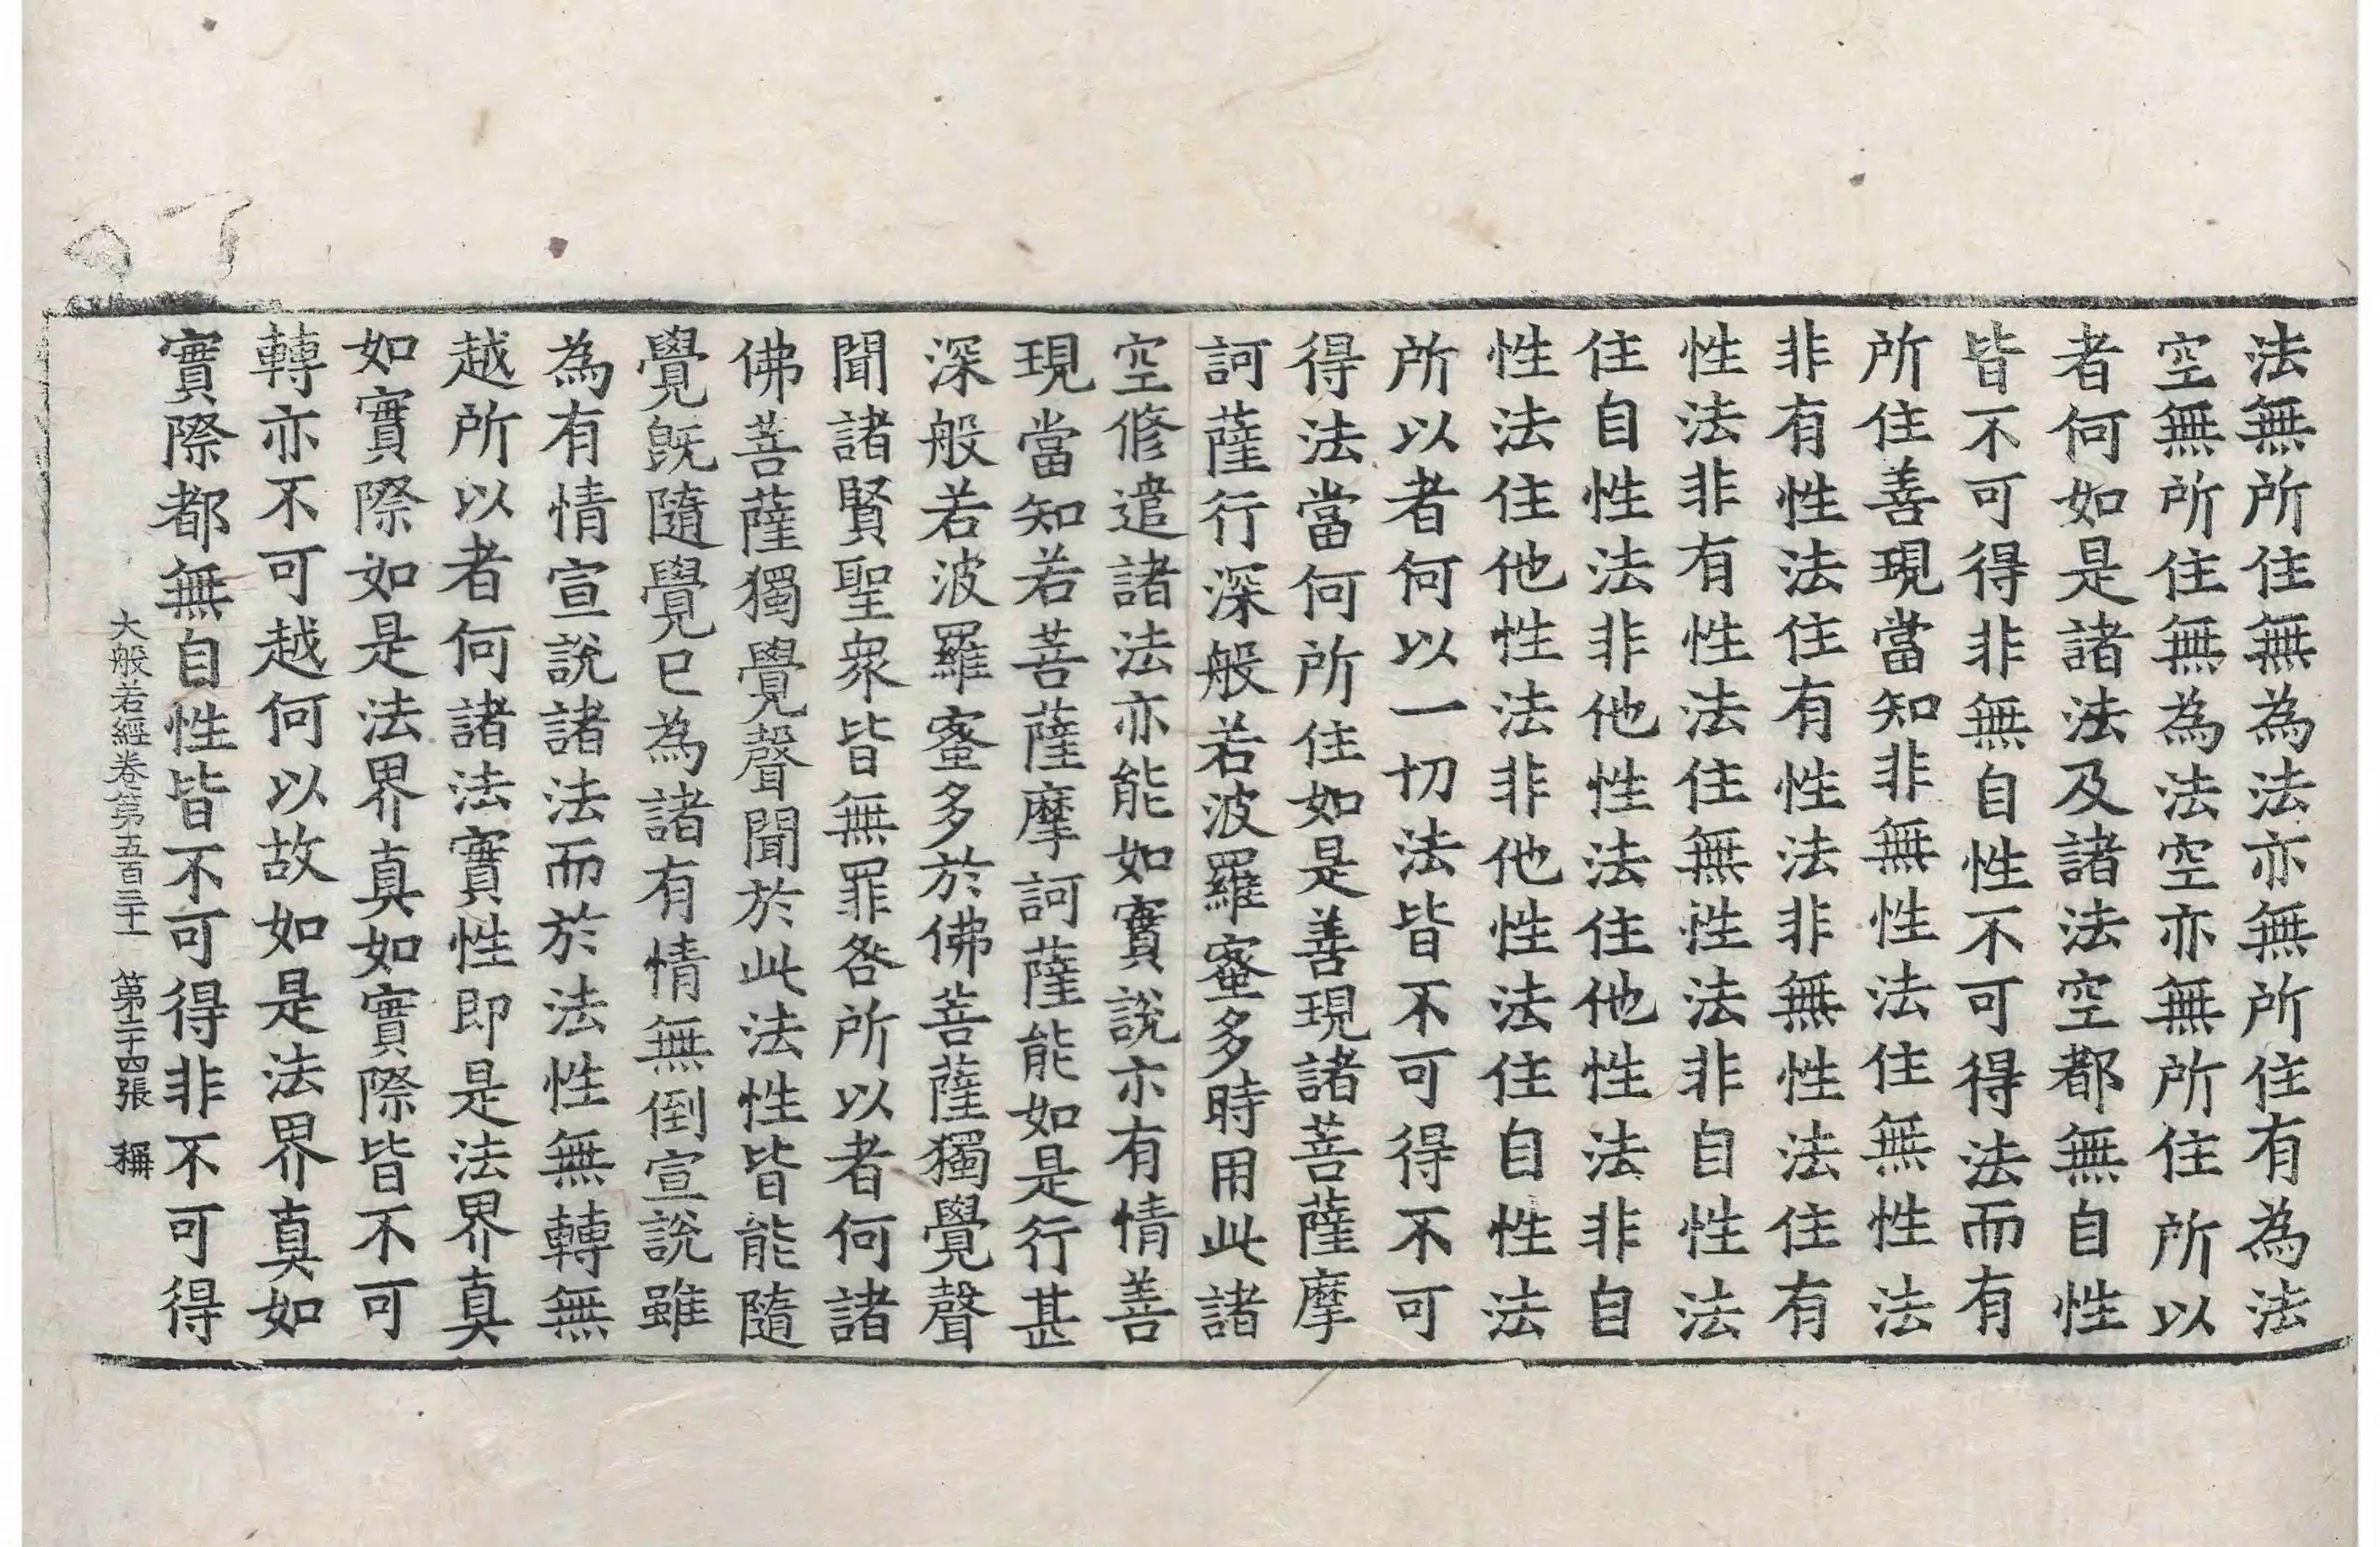 法無所住無為法亦無所住有為法
空無所住無為法空亦無所住所以
者何如是諸法及諸法空都無自性
皆不可得非無自性不可得法而有
所住善現當知非無性法住無性法
非有性法住有性法非無性法住有
性法非有性法住無性法非自性法
住自性法非他性法住他性法非自
性法住他性法非他性法住自性法
所以者何以一切法皆不可得不可
得法當何所住如是善現諸菩薩摩
訶薩行深般若波羅蜜多時用此諸
空修遣諸法亦能如實說示有情善
現當知若菩薩摩訶薩能如是行甚
深般若波羅蜜多於佛菩薩獨覺聲
聞諸賢聖衆皆無罪咎所以者何諸
佛菩薩獨覺聲聞於此法性皆能隨
覺既隨覺已為諸有情無倒宣說雖
為有情宣說諸法而於法性無轉無
越所以者何諸法實性即是法界真
如實際如是法界真如實際皆不可
轉亦不可越何以故如是法界真如
實際都無自性皆不可得非不可得
大般若經卷第五百三十一 第二十四張 稱